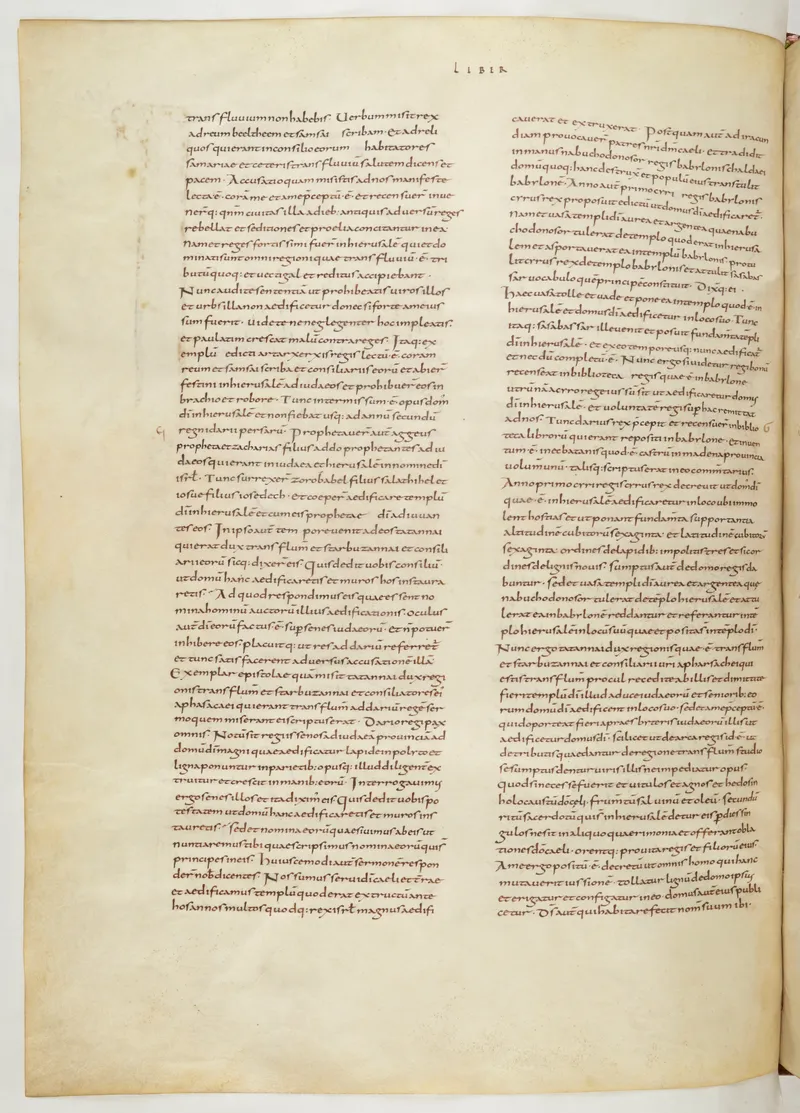 LIBER
trans fluuium non habebis. Uerbum misit rex
ad reum beelteem et samsai scribam. Et ad reli
quos qui erant in consilio eorum habitatores
samariae et ceteris trans fluuiū salutem dicens et
pacem. Accusatio quam misistis ad nos manifeste
lecta ē corā me et a me p̄ceptū ē. et recensuer̄ inue
nerq: qn̄m ciuitas illa adieb: antiquis aduersū reges
rebellat et seditiones et proelia concitantur in ea
Nam et reges fortissimi fuer̄ in hierusalē qui et do
minati sunt omni regioni quae trans fluuiū ē. tri
butū quoq: et uectigal et reditus accipiebant.
Nunc audite sententiā ut prohibeatis uiros illos
et urbs illa non aedificetur donec si forte a me ius
sum fuerit. uidete ne neglegenter hoc impleatis.
et paulatim crescat malū contra reges. Itaq: ex
emplū edicti artarxerxis regis lectū ē. coram
reum et samsai scriba et consiliariis eorū et abier
festini in hierusalē ad iudaeos et prohibuer̄ eos in
brachio et robore. Tunc intermissum ē. opus dom̄
dī in hierusalē et non fiebat usq: ad annū secundū
regni darii persarū. Prophetauer̄ aūt aggeus
propheta et zacharias filius addo prophantes ad iu
daeos qui erant in iudaea et hierusalē in nomine dī
isrl̄. Tunc surrexer̄ zorobabel filius salathihel et
iosue filius iosedech. et coeper̄ aedificare templū
dī in hierusalē et cum eis prophetae dī adiuuan
tes eos. In ipso aūt tem pore uenit ad eos tatannai
qui erat dux trans flum̄ et starbuzannai et consili
arii eorū sicq: dixer̄ eis Quis dedit uobis consiliū
ut domū hanc aedificaretis et muros hos instaura
retis. Ad quod respondimus eis quae essent no
mina hominū auctorū illius aedificationis. Oculus
aūt dī eorū factus ē. sup̄ senes iudaeorū. Et n̄ potuer̄
inhibere eos placuitq: ut res ad dariū referret̄
et tunc satis facerent aduersus accusationē illā
Exemplar epistolae quā misit tatannai dux regi
onis trans flum̄ et starbuzannai et consiliatores ei
aphasacaei qui erant trans flum̄ ad dariū regē ser
mo quem miserant ei scriptus erat. Dario regi pax
omnis. Notū sit regi isse nos ad iudaeā prouinciā ad
domū dī magni quae aedificatur lapide inpolito et
ligna ponuntur in parietib: opusq: illud diligent ex
truitur et crescit in manib: eorū. Interrogauimus
ergo senes illos et ita diximus eis Quis dedit uobis po
testatem ut domū hanc aedificaretis et muros ins
tauretis. sed et nomina eorū quaesiuimus ab eis ut
nuntiaremus tibi quae scripsimus nomina eorū quis
principes in eis. Huiuscemodi aūt sermonē respon
der̄ nob̄ dicentes. Nos sumus serui dī caeli et t̄rae
et aedificamus templū quod erat extructū ante
hos annos multos quodq: rex isrl̄ magnus aedifi
cauerat et extruxerat. Postquam aūt ad iracun
diam prouocauer̄ patres nr̄i dm̄ caeli. et tradidit
in manus nabuchodonosor regis babylonis chaldaei
domū quoq: hanc destruxit et populū eius transtulit
babylonē. Anno aūt primo cyri regis babylonis
cyrrus rex proposuit edictū ut domus dī aedificaret̄.
Nam et uasa templi dī aurea et argentea quae nabu
chodonosor tulerat de templo quod erat in hierusa
lem et asportauerat ea in templū babylonis protu
lit cyrrus rex de templo babylonis et data sunt sasabas
sar uocabulo quē principē constituit. Dixq: ei.
Haec uasa tolle et uade et pone ea in templo quod ē in
hierusalē et domus dī aedificetur in loco suo. Tunc
itaq: sasabassar ille uenit et posuit fundam̄ta tēpli
dī in hierusalē. et ex eo tempore usq: nunc aedificat̄
et necdū completū ē. Nunc ergo si uidetur regi bonū
recenseat in bibliotheca regis quae ē in babylone
utrū nā a cyro rege iussū sit ut aedificaretur domus
dī in hierusalē. et uoluntatē regis sup̄ hac re mittat
ad nos. Tunc darius rex p̄cepit et recensuer̄ in biblio
teca librorū qui erant repositi in babylone. et inuen
tum ē in ecbatanis quod ē. castrū in madena prouincia
uolumunū. talisq: scriptus erat in eo commentarius.
Anno primo cyri regis cyrrus rex decreuit ut dom̄ dī
quae ē. in hierusalē aedificaretur in loco ubi immo
lent hostias et ut ponant fundam̄ta supportantia
altitudinē cubitorū sexaginta. et latitudinē cubitorū
sexaginta. ordines de lapidib: impolitis tres et sic or
dines de lignis nouis. sumptus aūt de domo regis da
buntur. sed et uasa templi dī aurea et argentea que
nabuchodonosor tulerat de tēplo hierusalē et attu
lerat ea in babylonē reddantur et referantur in tē
plo hierusalē in locū suū quae et posita s̄ in tēplo dī.
Nunc ergo tatannai dux regionis quae ē. trans flum̄
et starbuzannai et consiliari uri apharsachei qui
estis trans flum̄ procul recedite ab illis et dimittite
fieri templū dī illud a duce iudaeorū et seniorib: eo
rum domū dī aedificent in loco suo. sed et a me p̄ceptū ē.
quid oporteat fieri a presbiteris iudaeorū illis ut
aedificetur domus dī. scilicet ut de arca regis id ē. ut
de tributis quae dantur de regione trans flum̄ studio
se sumptus dentur uiris illis ne impediatur opus.
Quod si necesse fuerit et uitulos et agnos et hedos in
holocaustū dō celi. frum̄tū sal uinū et oleū. secundū
ritū sacerdotū qui s̄ in hierusalē detur eis p dies sin
gulos ne sit in aliquo quaerimonia et offerant obla
tiones dō caeli. orentq: pro uita regis et filiorū eius
A me ergo positū ē. decretū ut omnis homo qui hanc
mutauerit iussionē. tollatur lignū de domo ipsius
et erigatur et configatur in eo. domus aūt eius publi
cetur. Dī aūt qui habitare fecit nom̄ suum ibi.